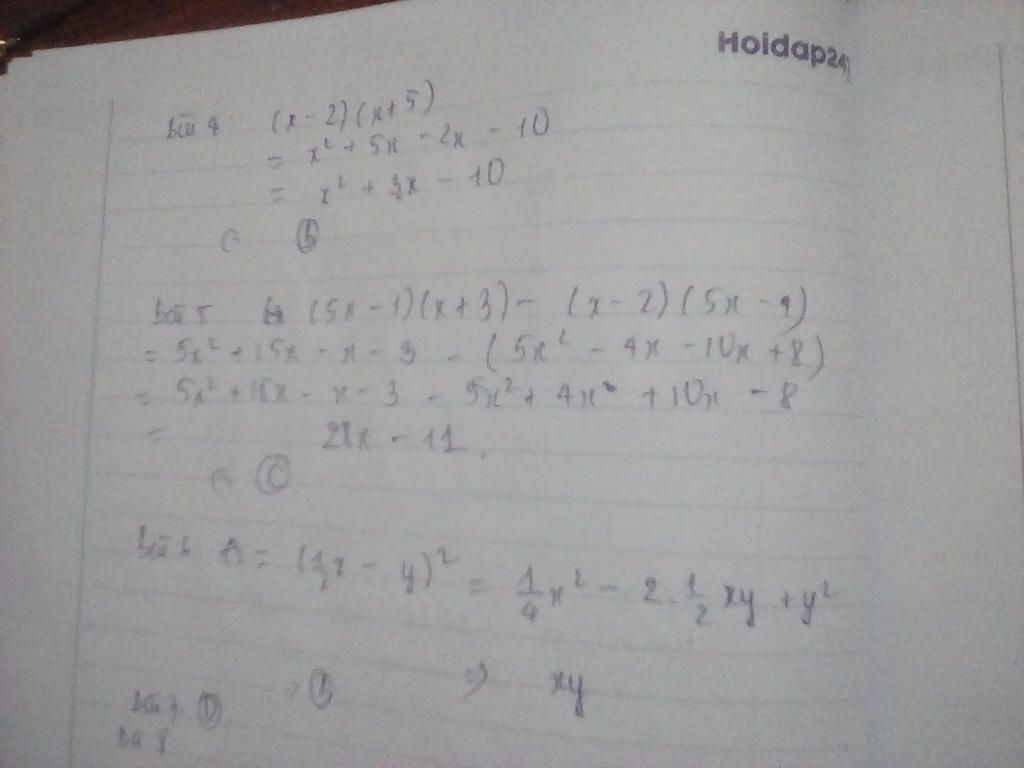 Hoidap247
Bài 4 (x - 2)(x + 5)
= x² + 5x - 2x - 10
= x² + 3x - 10
B
Bài 5 (5x - 1)(x + 3) - (x - 2)(5x - 4)
= 5x² + 15x - x - 3 - (5x² - 4x - 10x + 8)
= 5x² + 15x - x - 3 - 5x² + 4x + 10x - 8
= 28x - 11.
C
Bài 6 A = (½x - y)² = ¼x² - 2.½xy + y²
B ⇒ xy
Bài 7 D
Bài 8